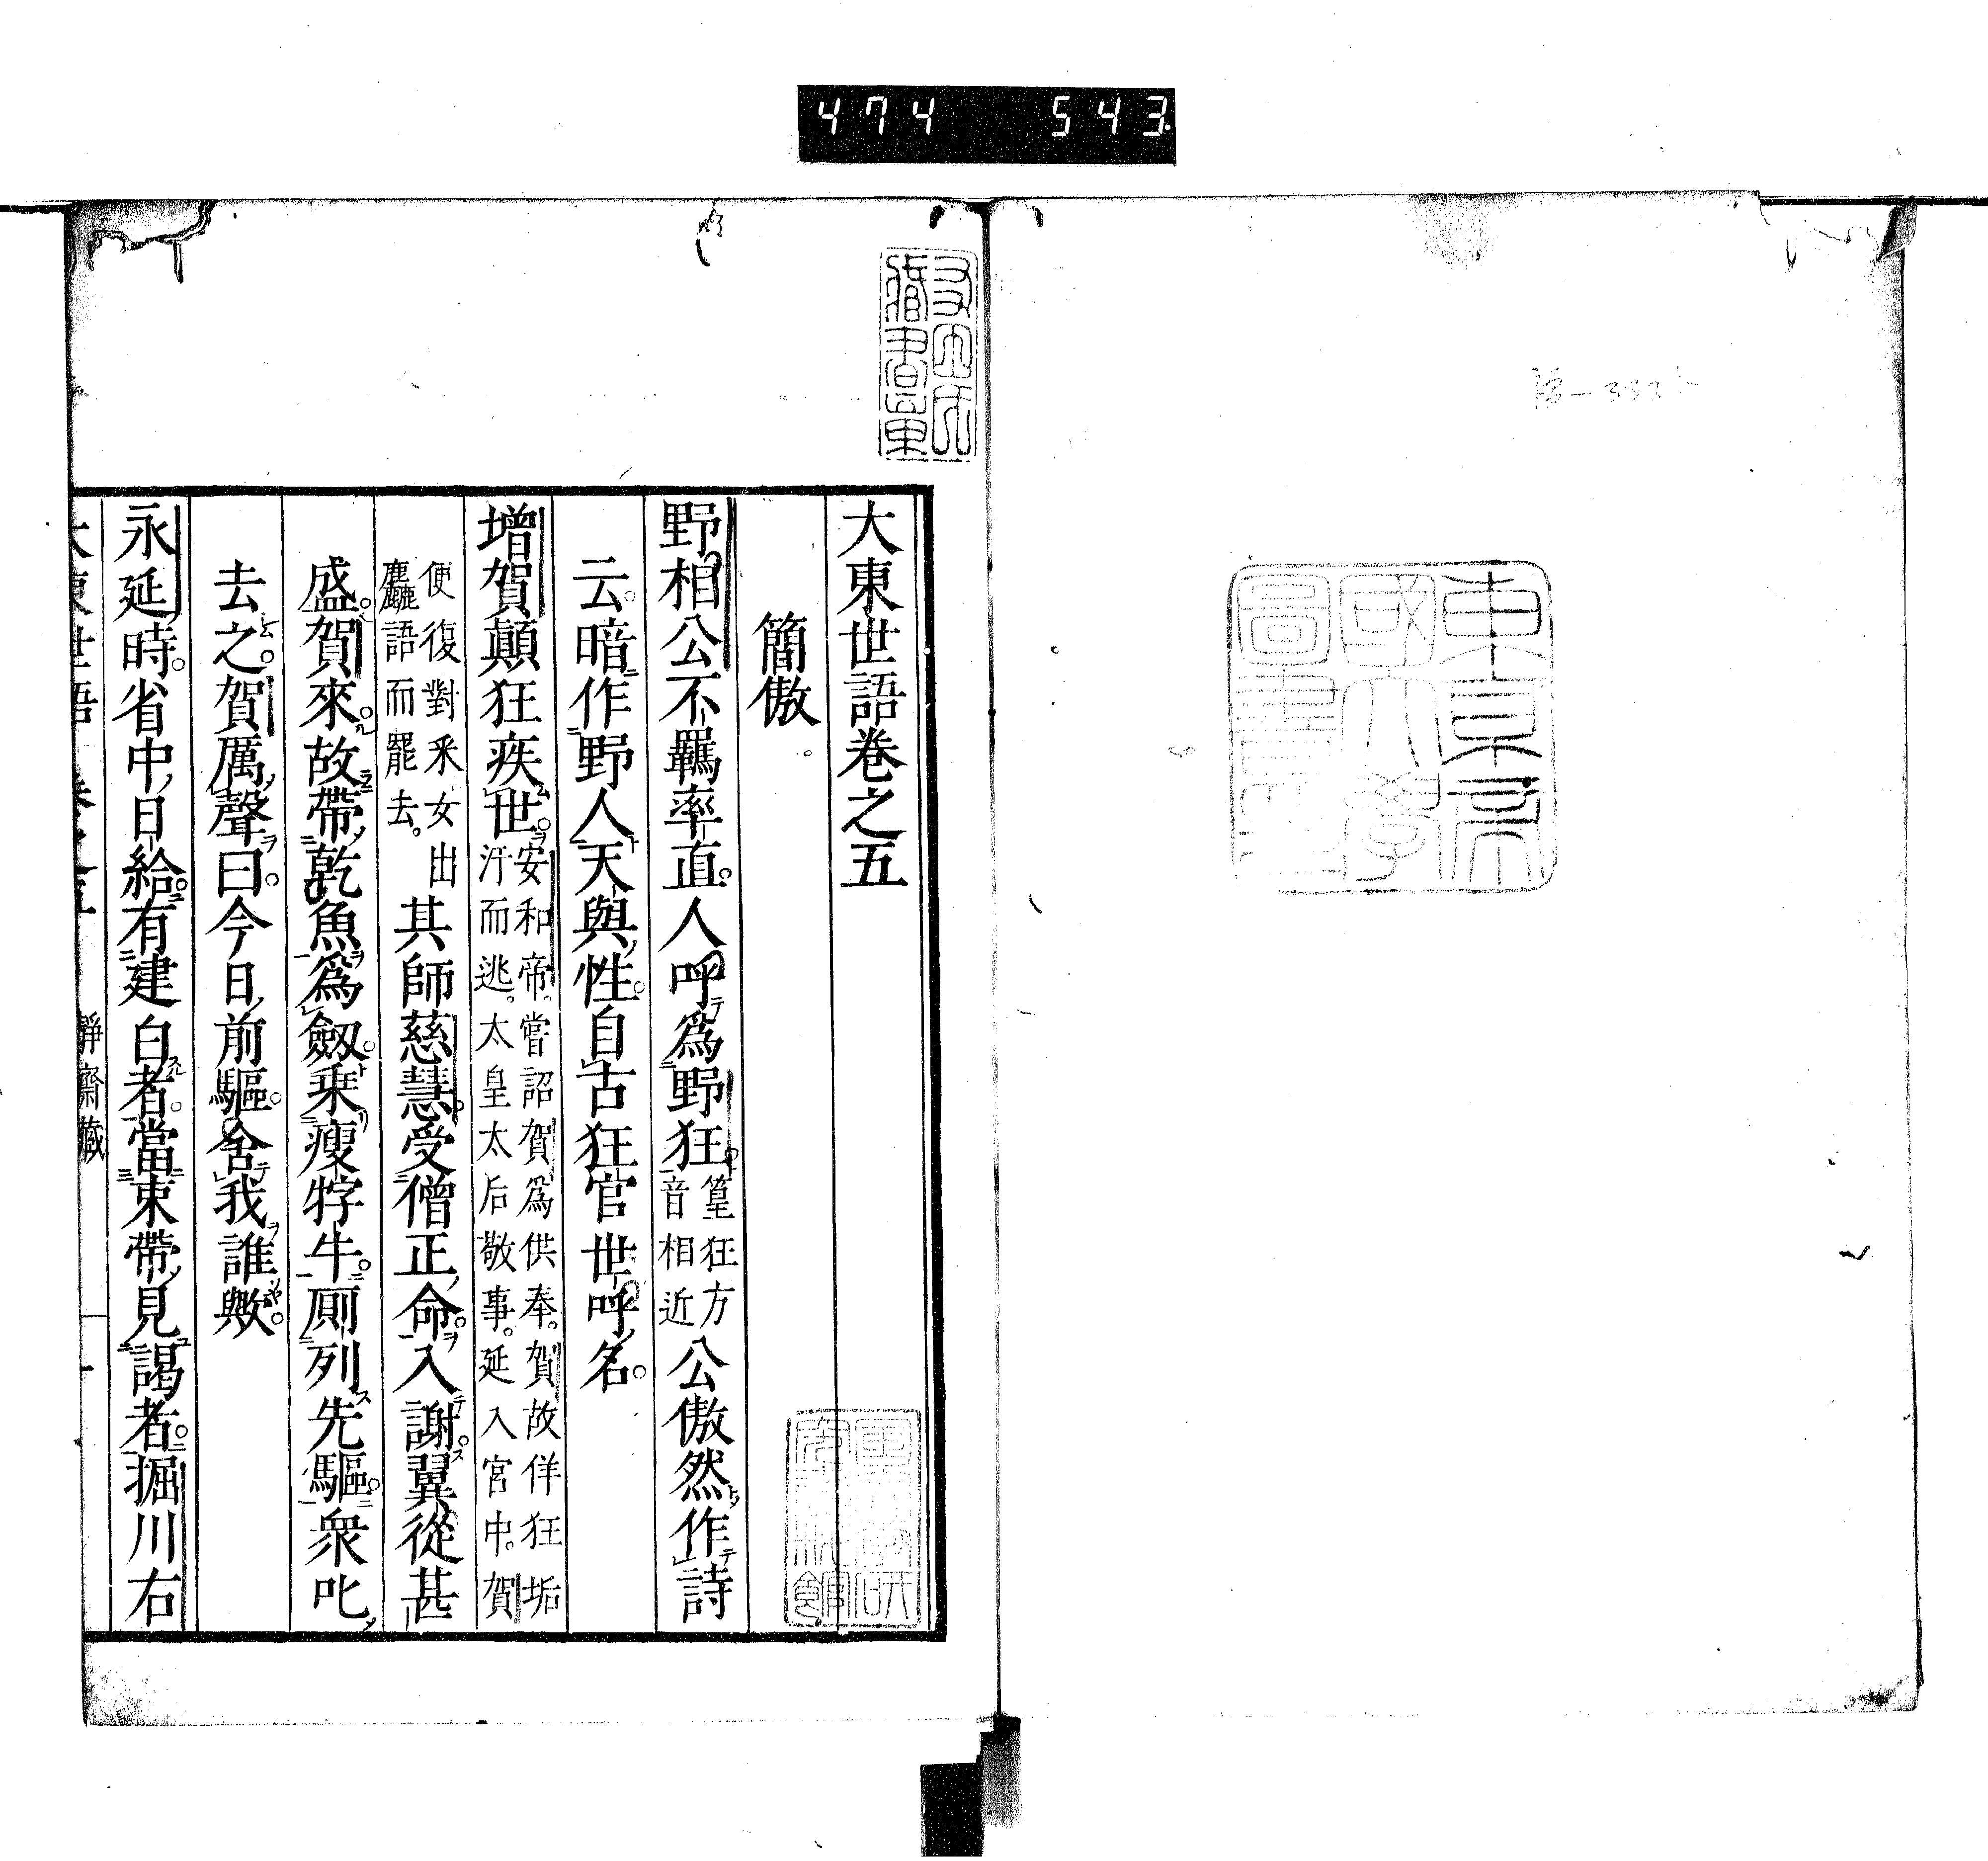 474 543
東京帝
國大學
圖書
藏書印
大東世語卷之五
簡傲
野相公不羈率直人呼爲野狂篁狂方音相近公傲然作詩
云暗作野人天與性自古狂官世呼名
增賀顛狂疾世安和帝嘗詔賀爲供奉賀故佯狂垢汙而逃太皇太后敬事延入宮中賀
便復對釆女出麤語而罷去其師慈慧受僧正命入謝翼從甚
盛賀來故帶乾魚爲劔乘瘦牸牛厠列先驅衆叱
去之賀厲聲曰今日前驅舍我誰歟
永延時省中日給有建白者當束帶見謁者掘川右
大東世語 卷之五 靜齋藏